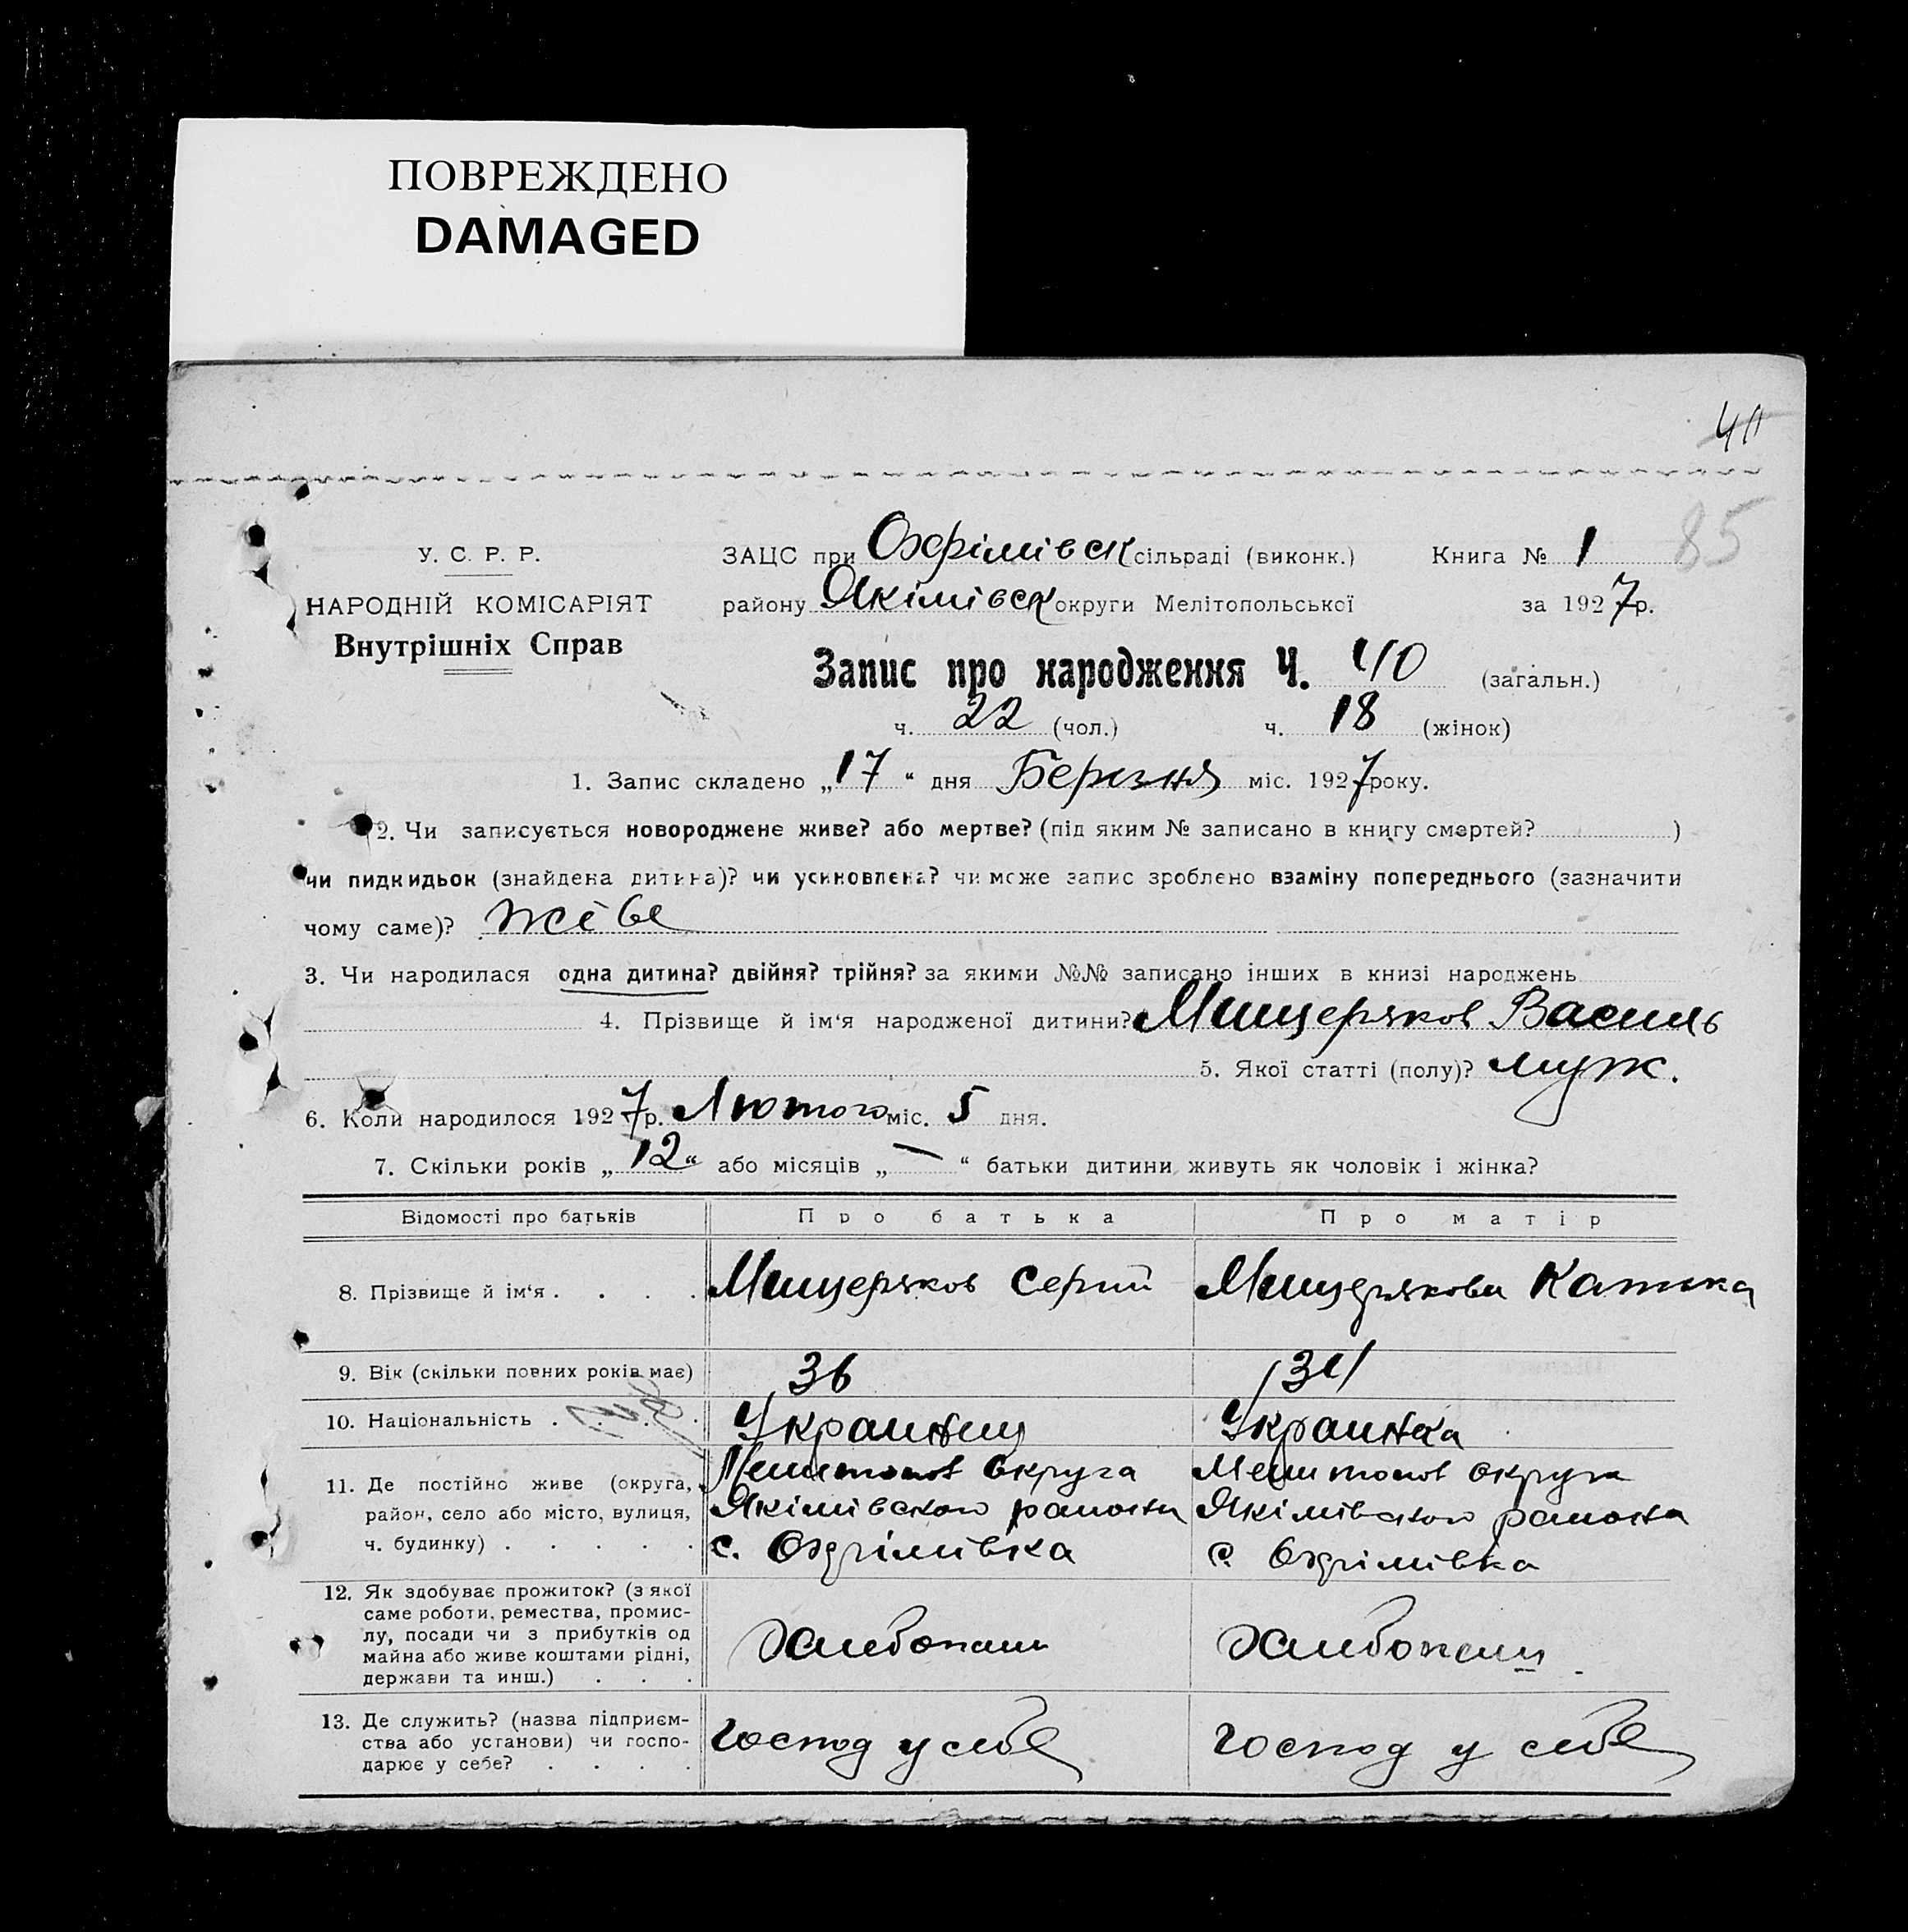 ПОВРЕЖДЕНО
DAMAGED
40
85
У. С. Р. Р.
НАРОДНІЙ КОМІСАРІЯТ
Внутрішніх Справ
ЗАЦС при Охрімівск сільраді (виконк.) Книга № 1
району Якімівск округи Мелітопольської за 1927 р.
Запис про народження Ч. 40 (загальн.)
ч. 22 (чол.) ч. 18 (жінок)
1. Запис складено „17“ дня Березня міс. 1927 року.
2. Чи записується новороджене живе? або мертве? (під яким № записано в книгу смертей? )
чи пидкидьок (знайдена дитина)? чи усиновлена? чи може запис зроблено взаміну попереднього (зазначити
чому саме)? живе
3. Чи народилася одна дитина? двійня? трійня? за якими №№ записано інших в книзі народжень
4. Прізвище й ім‘я народженої дитини? Мищеряков Василь
5. Якої статті (полу)? муж.
6. Коли народилося 1927 р. Лютого міс. 5 дня.
7. Скільки років „12“ або місяців „—“ батьки дитини живуть як чоловік і жінка?
Відомості про батьків Про батька Про матір
8. Прізвище й ім‘я . . . . Мищеряков Сергий Мищерякова
9. Вік (скільки повних років має) 36 34
10. Національність . . . . Украинец Украинка
11. Де постійно живе (округа, Мелитопол округа Мелитопол округа
район, село або місто, вулиця, Якімівского района Якімівского района
ч. будинку) . . . . . с. Охрімівка с. Охрімівка
12. Як здобуває прожиток? (з якої
саме роботи, ремества, промис-
лу, посади чи з прибутків од
майна або живе коштами рідні,
держави та инш.) . . .
хлебопаш хлебопаш
13. Де служить? (назва підприєм-
ства або установи) чи госпо-
дарює у себе? . . . .
господ у себе господ у себе